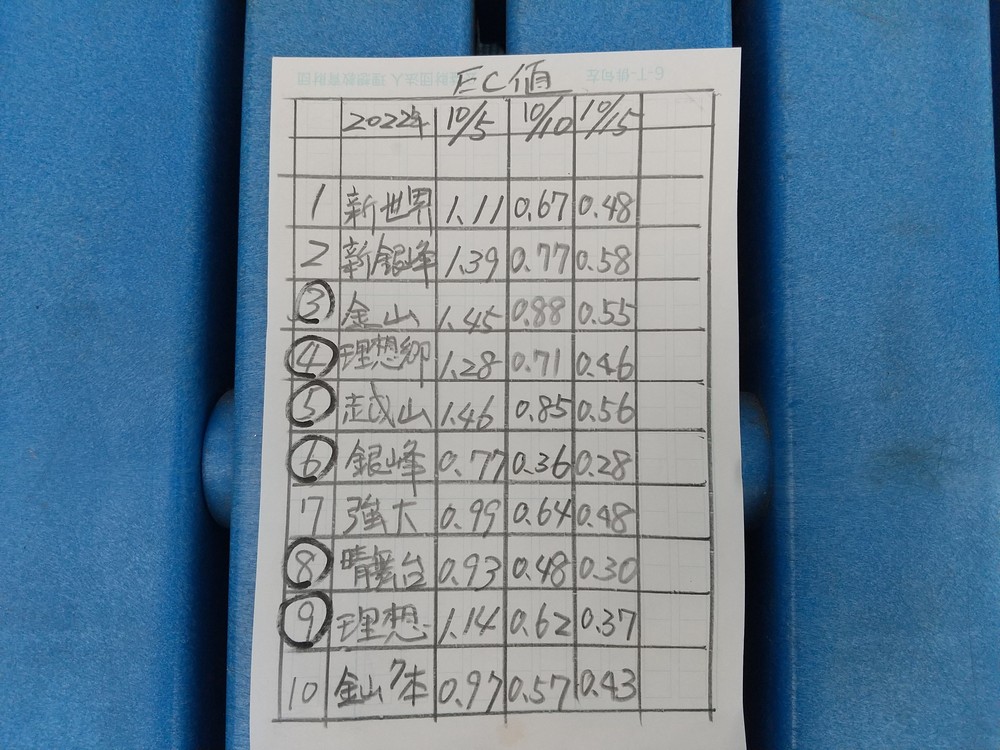 EC値
2022年 10/5 10/10 10/15
1 新世界 1.11 0.67 0.48
2 新銀峰 1.39 0.77 0.58
③ 金山 1.45 0.88 0.55
④ 理想郷 1.28 0.71 0.46
⑤ 越山 1.46 0.85 0.56
⑥ 銀峰 0.77 0.36 0.28
7 強大 0.99 0.64 0.48
⑧ 晴舞台 0.93 0.48 0.30
⑨ 理想 1.14 0.62 0.37
10 金山7本 0.97 0.57 0.43